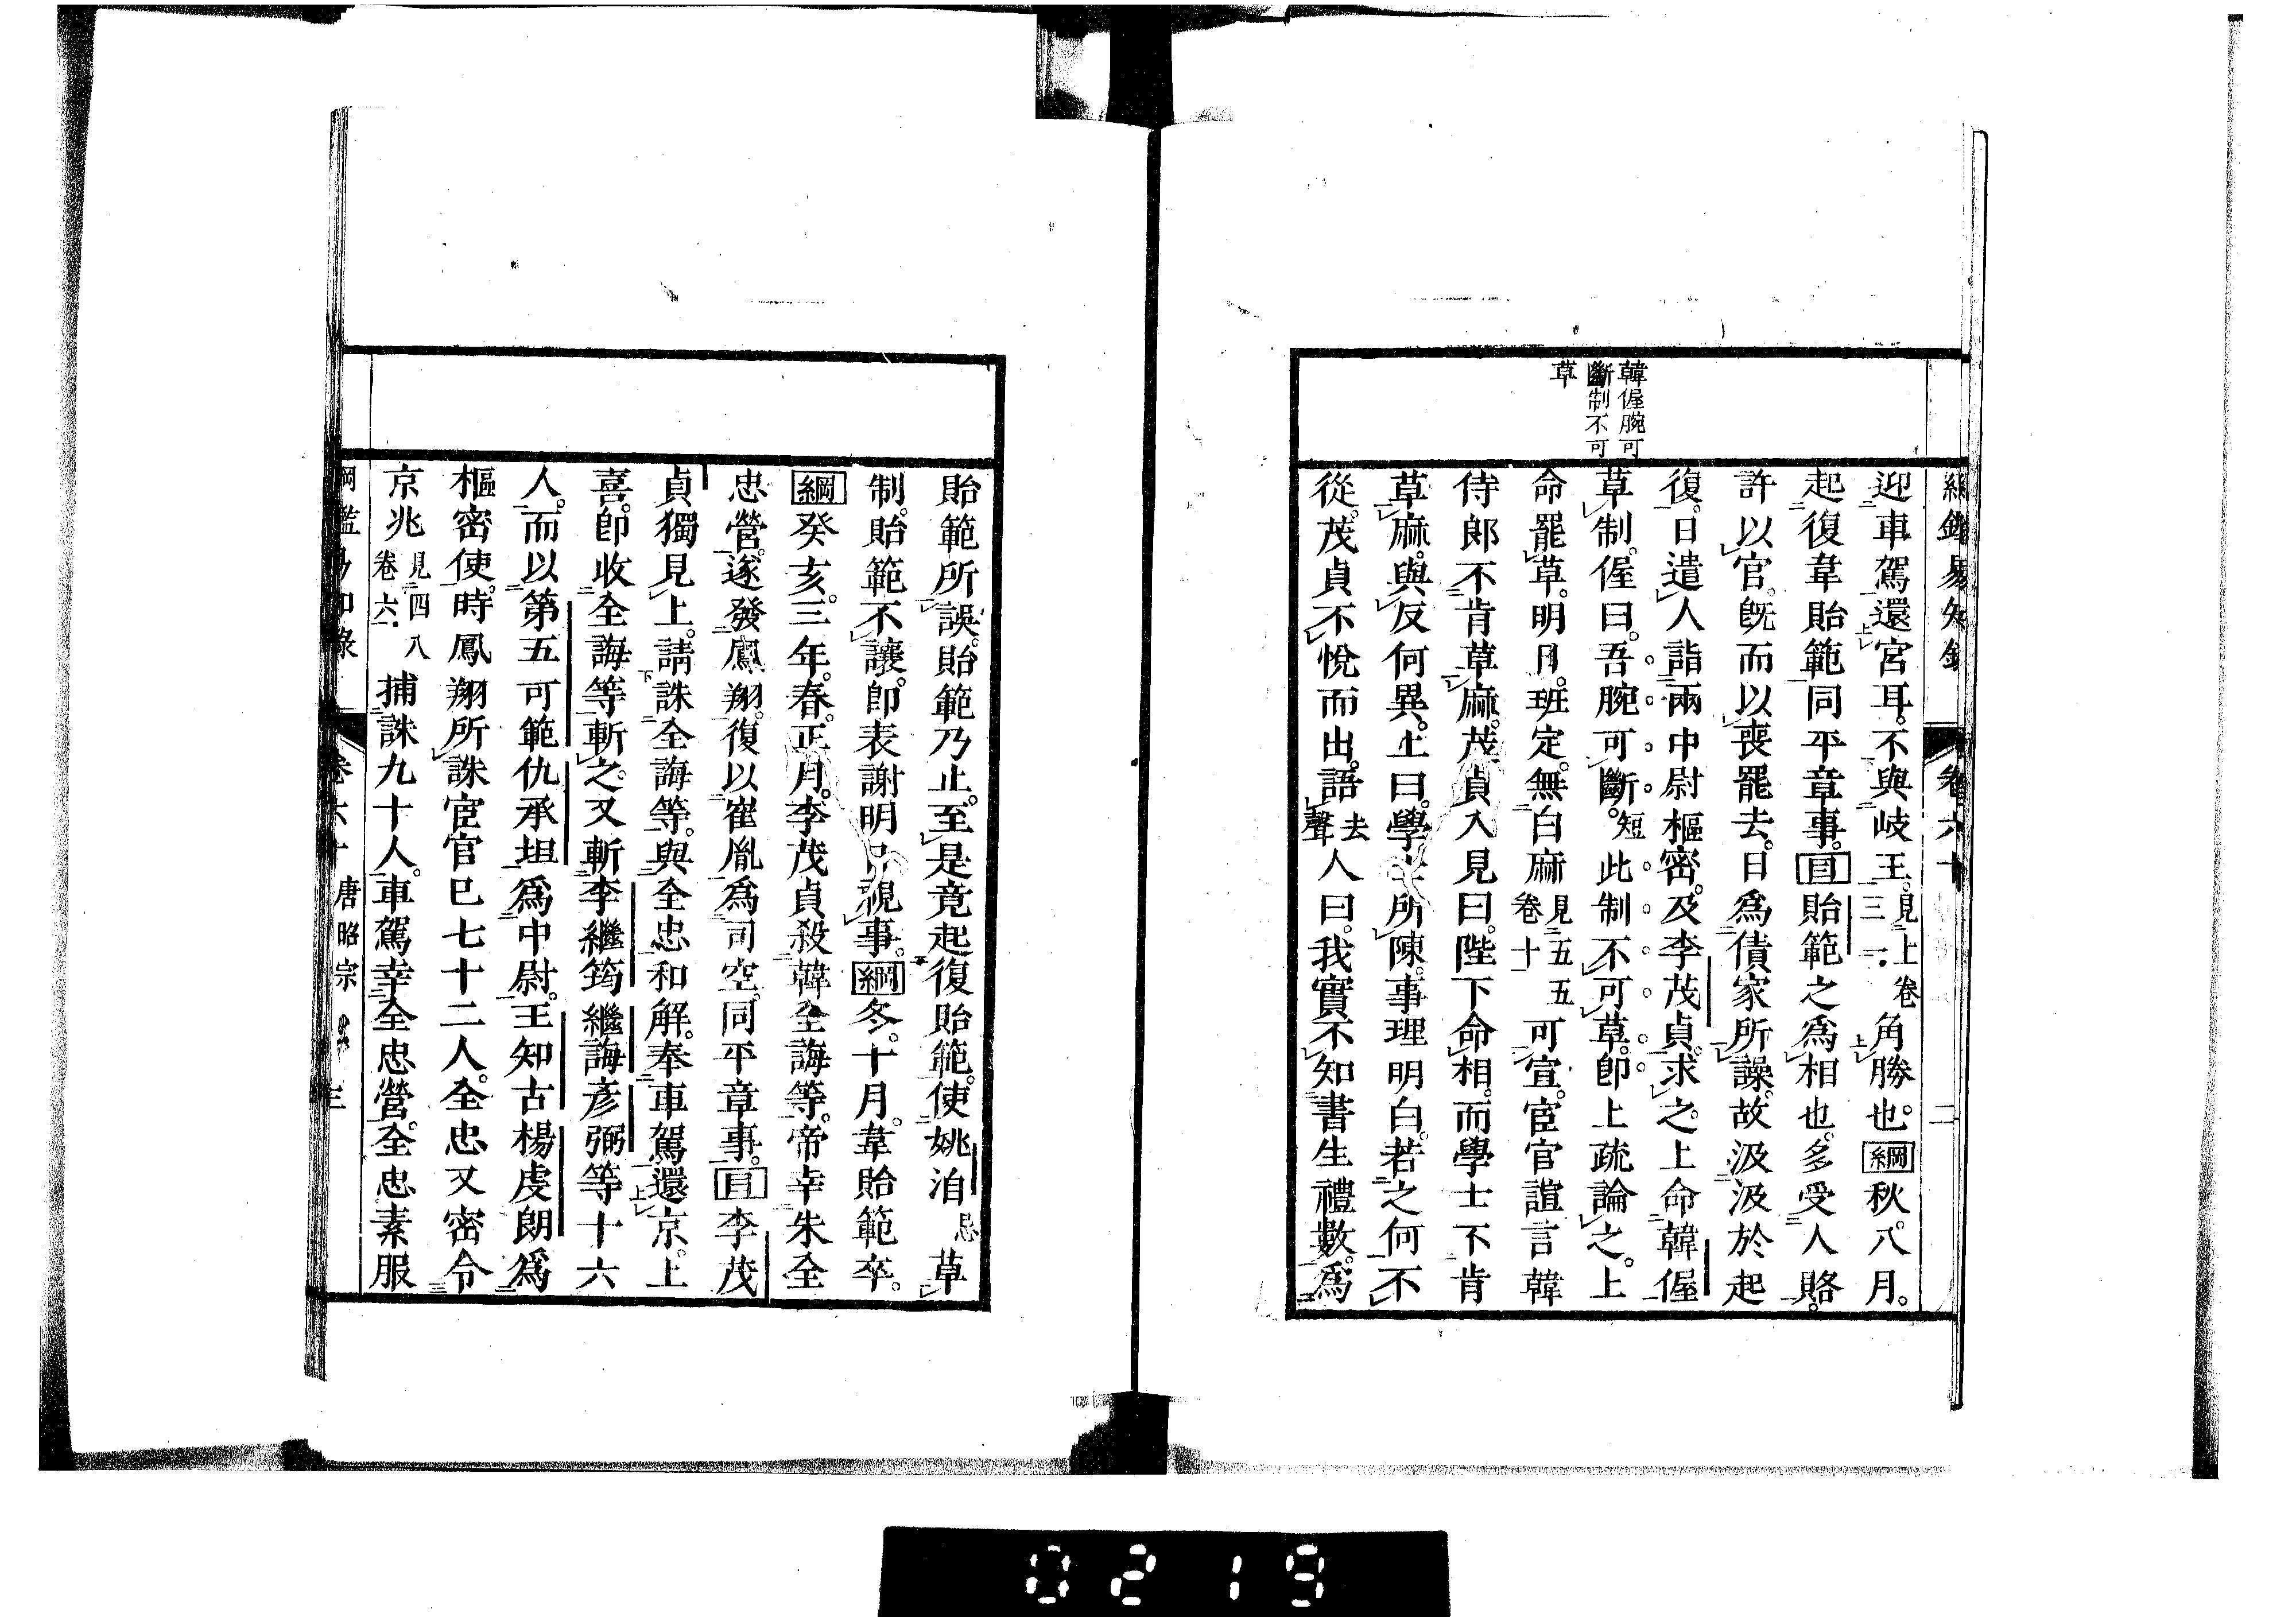 韓偓腕可
斷制不可
草
迎車駕還宮耳。不與岐王。見上卷三一。角勝也。綱秋。八月。
起復韋貽範同平章事。目貽範之爲相也。多受人賂。
許以官。旣而以喪罷去。日爲債家所譟。故汲汲於起
復。日遣人詣兩中尉樞密。及李茂貞。求之。上命韓偓
草制。偓曰。吾腕可斷。短此制不可草。卽上疏論之。上
命罷草。明日。班定。無白麻見五五卷十一可宣。宦官諠言韓
侍郎不肯草麻。茂貞入見曰。陛下命相。而學士不肯
草麻。與反何異。上曰。學士所陳。事理明白。若之何不
從。茂貞不悅而出。語去聲人曰。我實不知書生禮數。爲
貽範所誤。貽範乃止。至是竟起復貽範。使姚洎忌草
制。貽範不讓。卽表謝明日視事。綱冬。十月。韋貽範卒。
綱癸亥。三年。春。正月。李茂貞殺韓全誨等。帝幸朱全
忠營。遂發鳳翔。復以崔胤爲司空。同平章事。目李茂
貞獨見上。請誅全誨等。與全忠和解。奉車駕還京。上
喜。卽收全誨等斬之。又斬李繼筠繼誨彥弼等十六
人。而以第五可範仇承坦爲中尉。王知古楊虔朗爲
樞密使。時鳳翔所誅宦官已七十二人。全忠又密令
京兆見四八卷六一捕誅九十人。車駕幸全忠營。全忠素服
卷六十 唐昭宗 三
0219